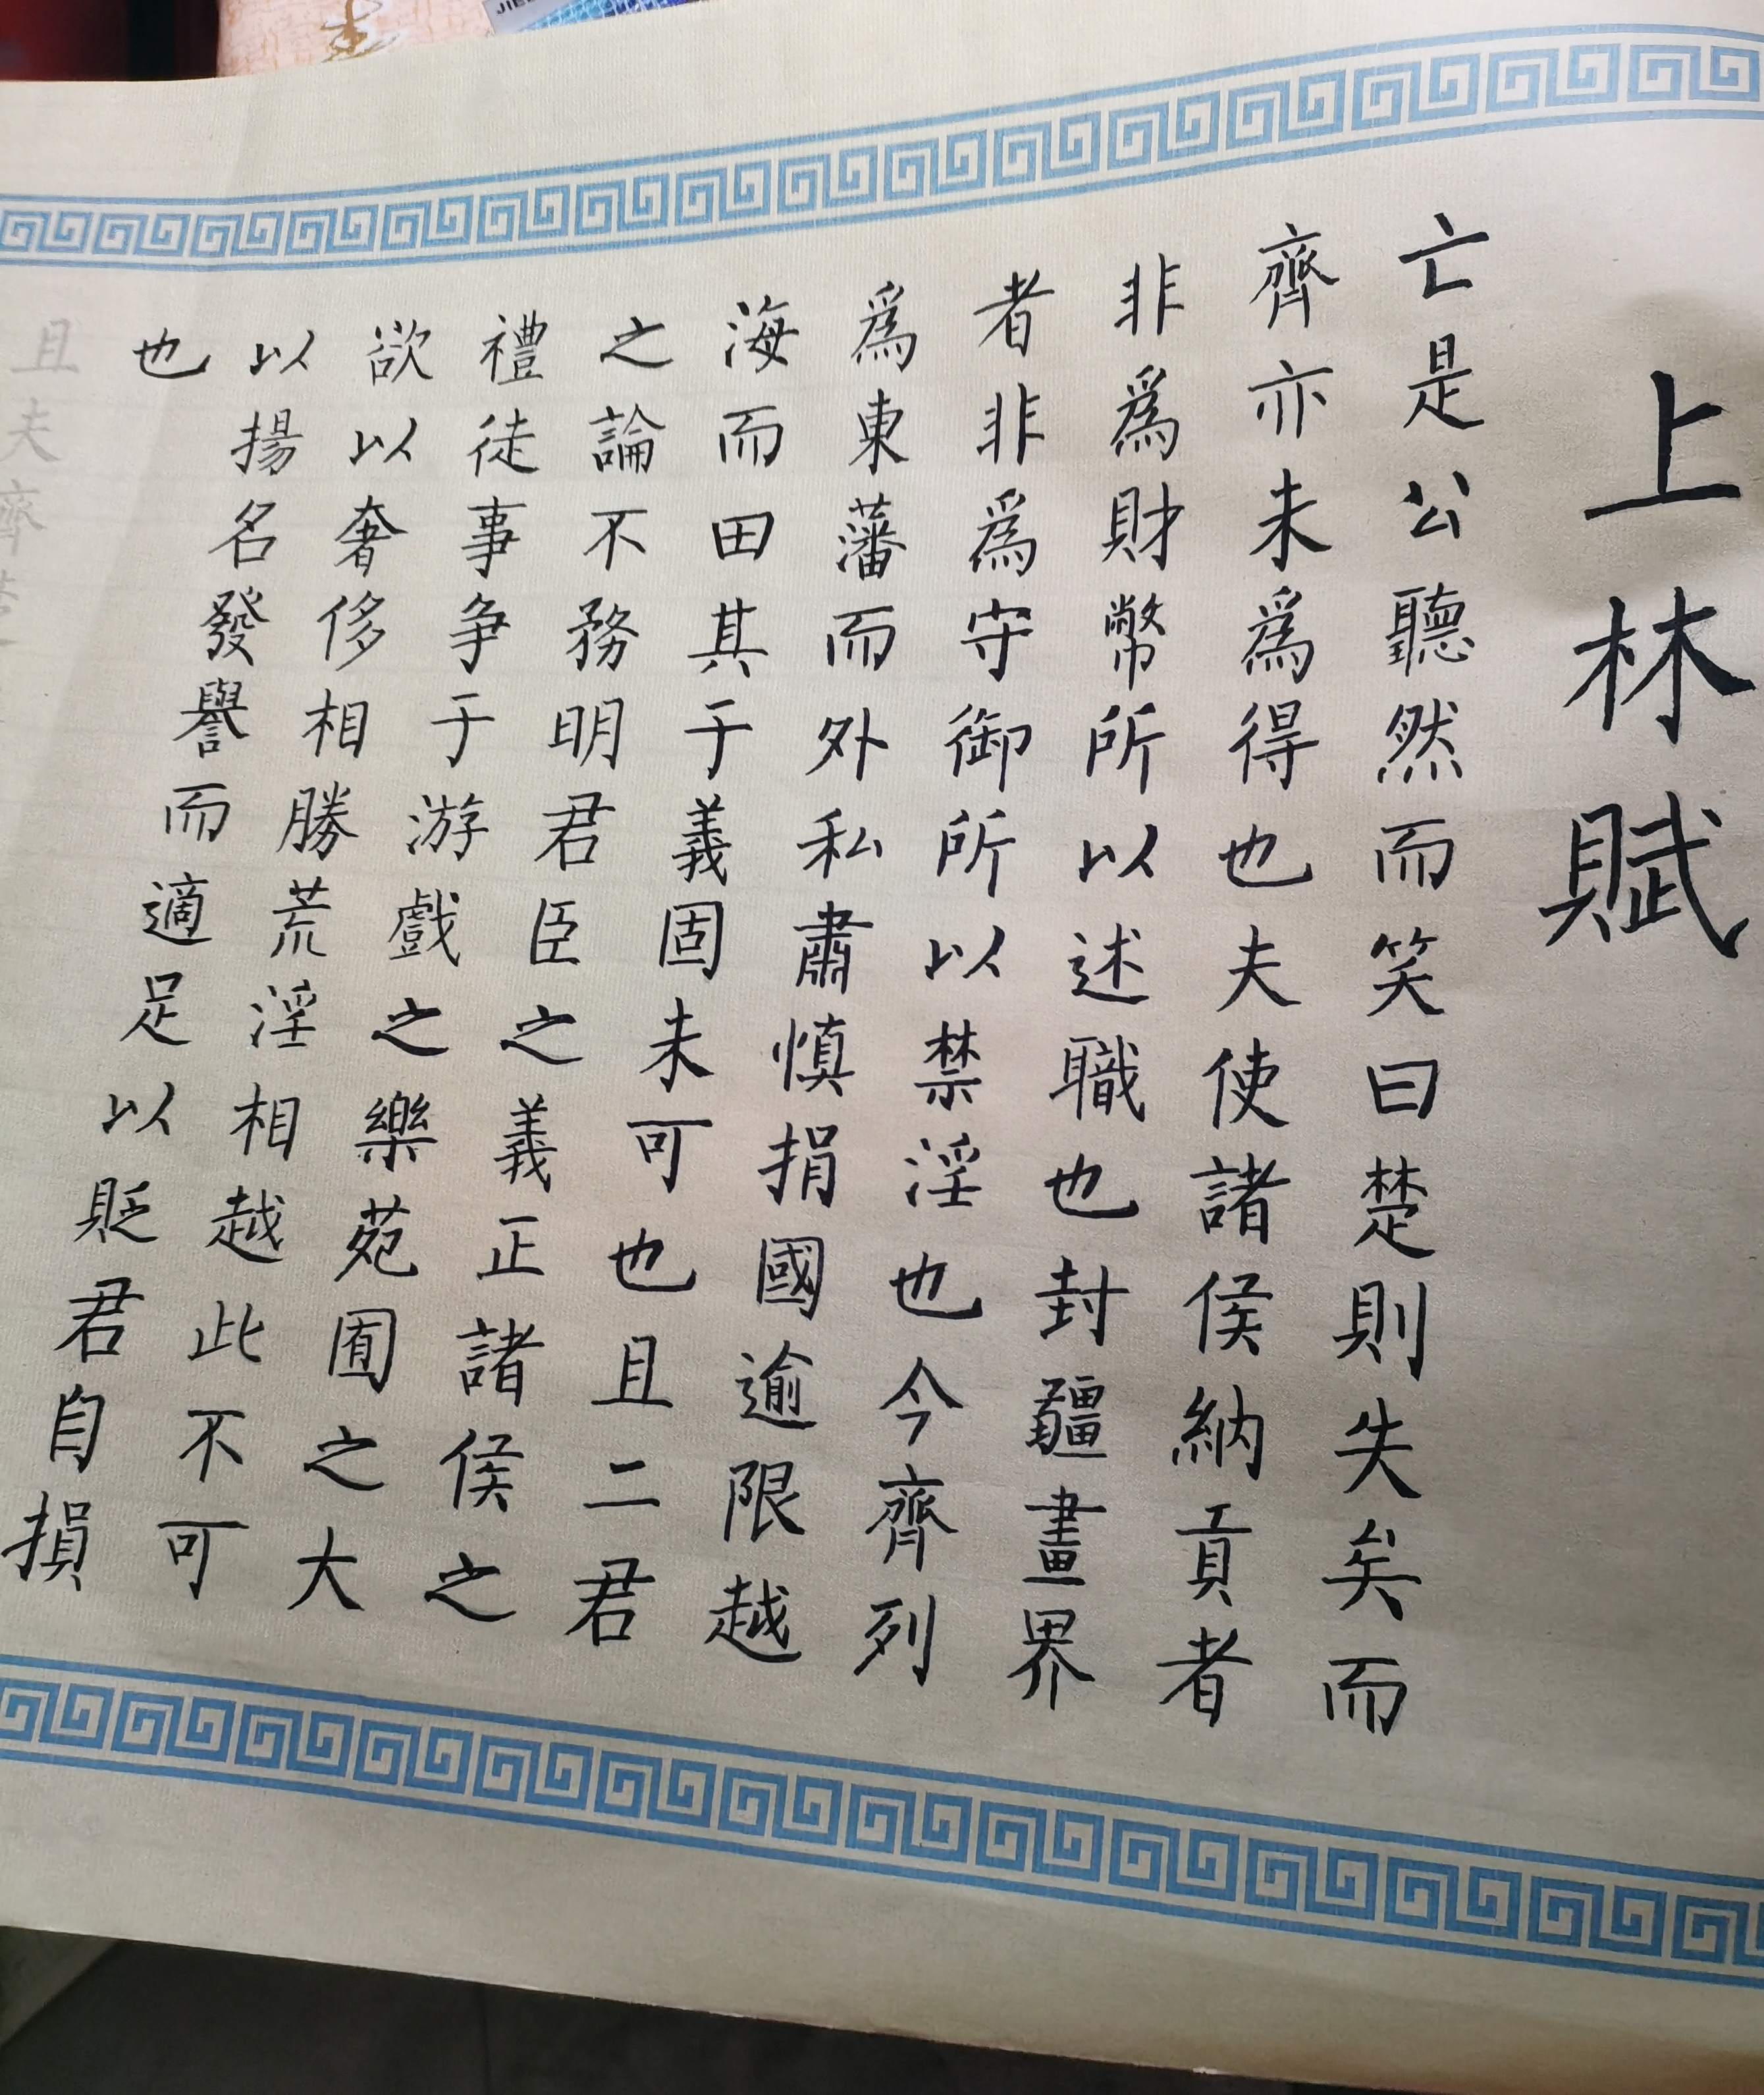 上林賦
亡是公聽然而笑曰楚則失矣而
齊亦未爲得也夫使諸侯納貢者
非爲財幣所以述職也封疆畫界
者非爲守御所以禁淫也今齊列
爲東藩而外私肅慎捐國逾限越
海而田其于義固未可也且二君
之論不務明君臣之義正諸侯之
禮徒事争于游戲之樂苑囿之大
欲以奢侈相勝荒淫相越此不可
以揚名發譽而適足以貶君自損
也
且夫齊